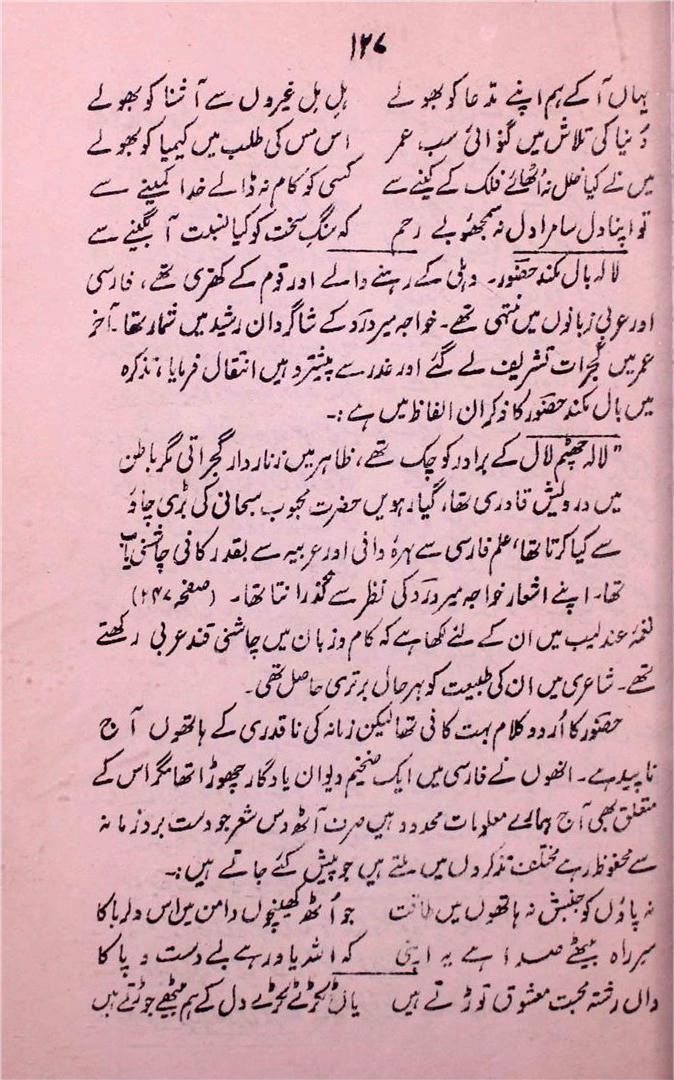 ۱۲۷
یہاں آ کے ہم اپنے مدعا کو بھولے ہل مل غیروں سے آشنا کو بھولے
دُنیا کی تلاش میں گنوائی سب عمر اس مس کی طلب میں کیمیا کو بھولے
میں نے کیا نہ اُٹھائے فلک کے کینے سے کسی کو کام نہ ڈالے خدا کمینے سے
تو اپنا دل سا مرا دل نہ سمجھو بے رحم کہ سنگِ سخت کو کیا نسبت آبگینے سے
لالہ بال مکند حضور۔ دہلی کے رہنے والے اور قوم کے کھتری تھے، فارسی
اور عربی زبانوں میں منتہی تھے۔ خواجہ میر درد کے شاگردانِ رشید میں شمار تھا۔ آخر
عمر میں گجرات تشریف لے گئے اور غدر سے پیشتر وہیں انتقال فرمایا، تذکرہ
میں بال مکند حضور کا ذکر ان الفاظ میں ہے :۔
"لالہ چھٹم لال کے برادر کوچک تھے، ظاہر میں زنار دار گجراتی مگر باطن
میں درویش قادری تھا، گیارہویں حضرت محبوب سبحانی کی بڑی چاؤ
سے کیا کرتا تھا، علم فارسی سے بہرہ وافی اور عربیہ سے بقدر کافی چاشنی یاب
تھا۔ اپنے اشعار خواجہ میر درد کی نظر سے گذرانتا تھا۔ (صفحہ ۲۴۷)
نغمہ عندلیب میں ان کے لئے لکھا ہے کہ کام و زبان میں چاشنی قند عربی رکھتے
تھے۔ شاعری میں ان کی طبیعت کو بہرحال برتری حاصل تھی۔
حضور کا اُردو کلام بہت کافی تھا لیکن زمانہ کی ناقدری کے ہاتھوں آج
ناپید ہے۔ انھوں نے فارسی میں ایک ضخیم دیوان یادگار چھوڑا تھا مگر اس کے
متعلق بھی آج ہمارے معلومات محدود ہیں صرف آٹھ دس شعر جو دست برد زمانہ
سے محفوظ رہے مختلف تذکروں میں ملتے ہیں جو پیش کئے جاتے ہیں :۔
نہ پاؤں کو جنبش نہ ہاتھوں میں طاقت جو اُٹھ کھینچوں دامن میں اس دلربا کا
سرِ راہ بیٹھے صدا ہے یہ اپنی کہ اللہ یاور ہے بے دست و پا کا
واں رشتہ محبت معشوق توڑتے ہیں یاں ٹکڑے ٹکڑے دل کے ہم بیٹھے جوڑتے ہیں